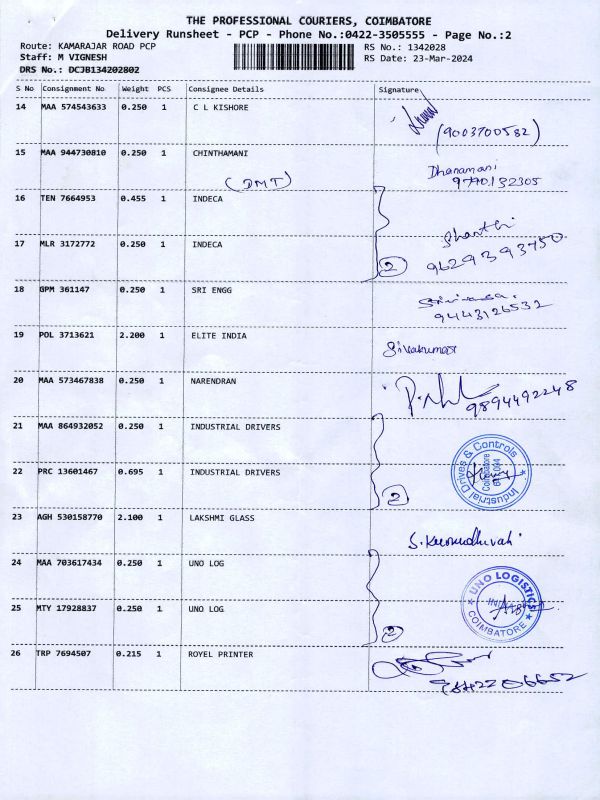 THE PROFESSIONAL COURIERS, COIMBATORE
Delivery Runsheet - PCP - Phone No.:0422-3505555 - Page No.:2
Route: KAMARAJAR ROAD PCP RS No.: 1342028
Staff: M VIGNESH RS Date: 23-Mar-2024
DRS No.: DCJB134202802
S No Consignment No Weight PCS Consignee Details Signature
14 MAA 574543633 0.250 1 C L KISHORE
(9003700582)
15 MAA 944730810 0.250 1 CHINTHAMANI Dhanamani
(DMT)
16 TEN 7664953 0.455 1 INDECA
Shanthi
17 MLR 3172772 0.250 1 INDECA
2 9629393750
18 GPM 361147 0.250 1 SRI ENGG
9443126532
19 POL 3713621 2.200 1 ELITE INDIA
Sivakumar
20 MAA 573467838 0.250 1 NARENDRAN
9894492248
21 MAA 864932052 0.250 1 INDUSTRIAL DRIVERS
Industrial Drives & Controls
Coimbatore
22 PRC 13601467 0.695 1 INDUSTRIAL DRIVERS
2
23 AGH 530158770 2.100 1 LAKSHMI GLASS
24 MAA 703617434 0.250 1 UNO LOG
UNO LOGISTICS
INDIA
COIMBATORE
25 MTY 17928837 0.250 1 UNO LOG
2
26 TRP 7694507 0.215 1 ROYEL PRINTER